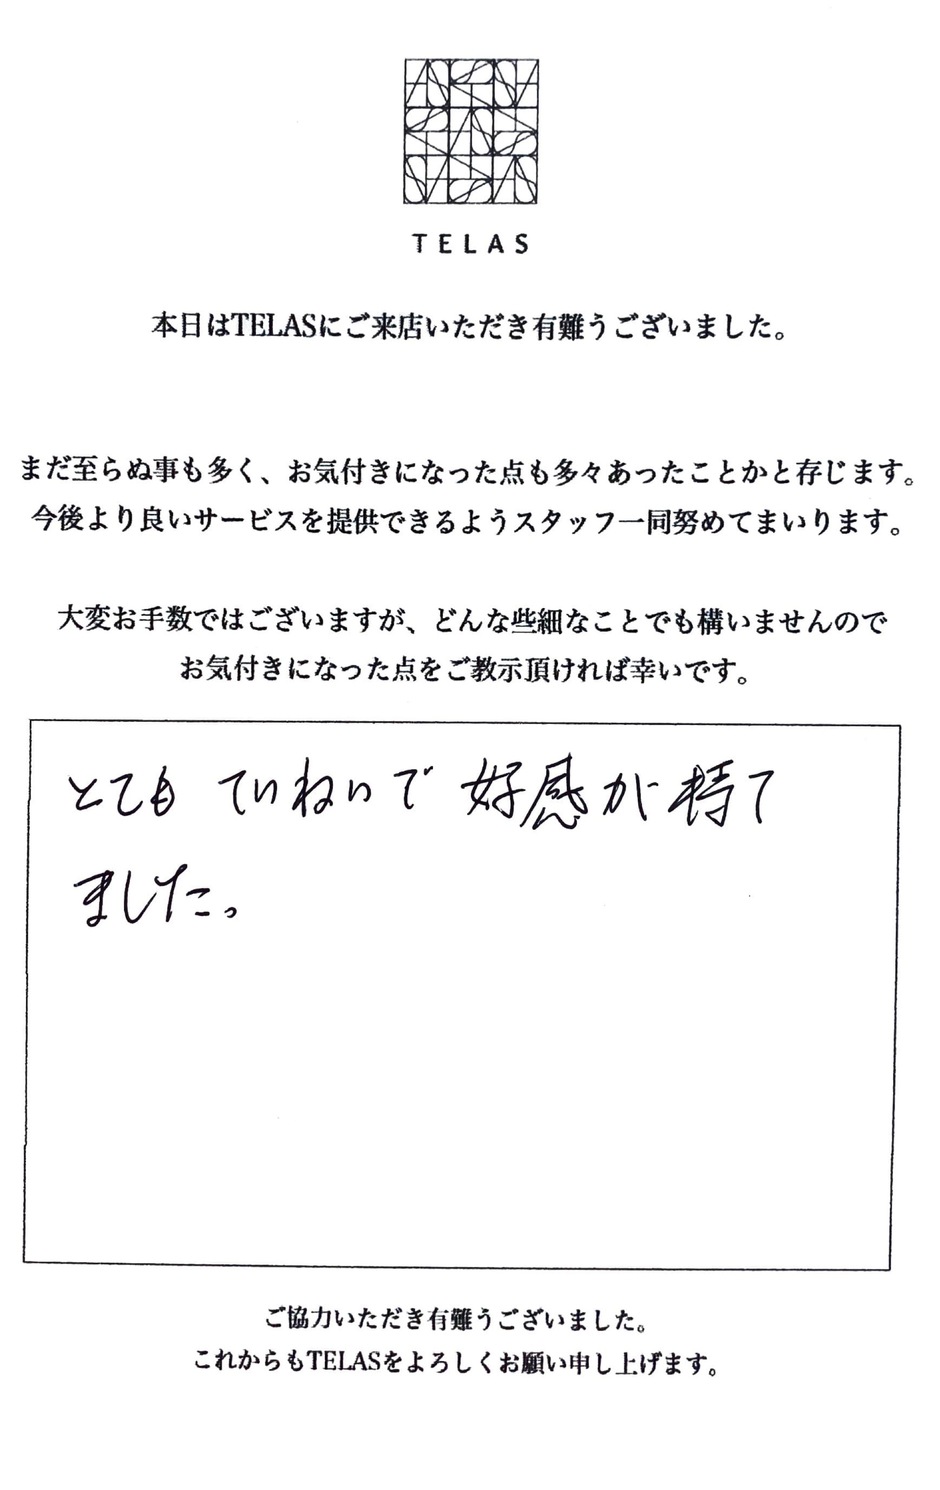 TELAS
本日はTELASにご来店いただき有難うございました。
まだ至らぬ事も多く、お気付きになった点も多々あったことかと存じます。
今後より良いサービスを提供できるようスタッフ一同努めてまいります。
大変お手数ではございますが、どんな些細なことでも構いませんので
お気付きになった点をご教示頂ければ幸いです。
とても ていねいで 好感が持て
ました。
ご協力いただき有難うございました。
これからもTELASをよろしくお願い申し上げます。